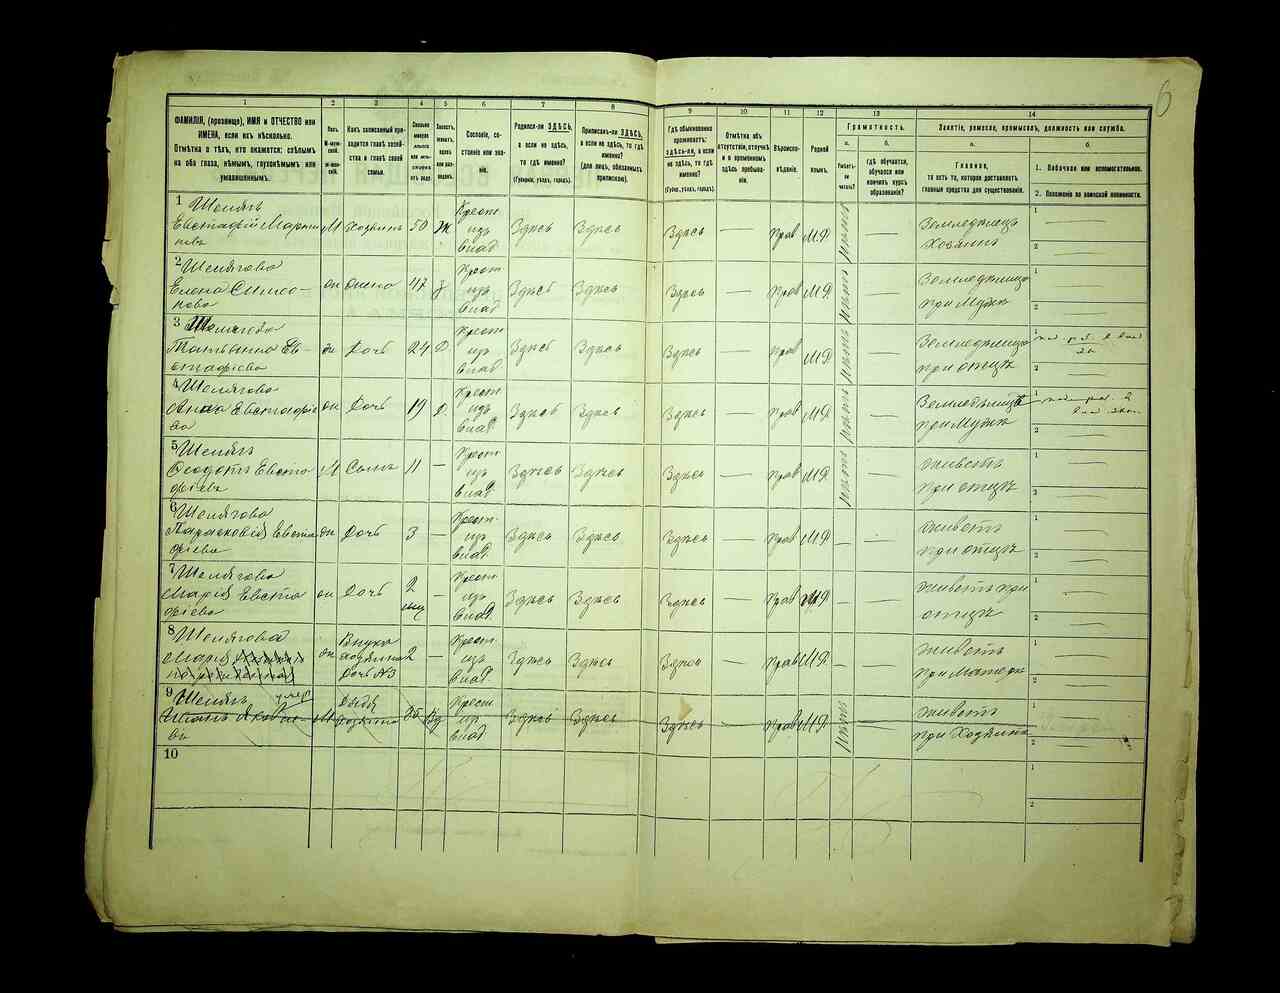 6
1 2 3 4 5 6 7 8 9 10 11 12 13 14
ФАМИЛІЯ, (прозвище), ИМЯ и ОТЧЕСТВО или
ИМЕНА, если ихъ нѣсколько.
Отмѣтка о тѣхъ, кто окажется: слѣпымъ
на оба глаза, нѣмымъ, глухонѣмымъ или
умалишеннымъ.
Какъ записанный при-
ходится главѣ хозяй-
ства и главѣ своей
семьи.
Сословіе, со-
стояніе или зва-
ніе.
Родился-ли ЗДѢСЬ,
а если не здѣсь,
то гдѣ именно?
(Губернія, уѣздъ, городъ).
Приписанъ-ли ЗДѢСЬ,
а если не здѣсь, то гдѣ
именно?
(для лицъ, обязанныхъ
припискою).
Гдѣ обыкновенно
проживаетъ:
здѣсь-ли, а если
не здѣсь, то гдѣ
именно?
(Губ., уѣздъ, городъ).
Отмѣтка объ
отсутствіи, отлучкѣ
и о временномъ
здѣсь пребыва-
ніи.
Вѣроиспо-
вѣданіе.
Родной
языкъ.
Грамотность.
а.
Умѣетъ-
ли
читать?
б.
Гдѣ обучается,
обучался или
кончилъ курсъ
образованія?
Занятіе, ремесло, промыселъ, должность или служба.
а.
Главное,
то есть то, которое доставляетъ
главныя средства для существованія.
б.
1. Побочное или вспомогательное.
2. Положеніе по воинской повинности.
1 Шелягъ
Евстафій Марти
новъ
М Хозяинъ 50 Ж
Крест
изъ
влад
Здѣсь Здѣсь Здѣсь — Прав МР нѣтъ —
Земледѣлецъ
Хозяинъ
2 Шелягова
Елена Симео-
нова
Жена 47
Крест
изъ
влад
Здѣсь Здѣсь Здѣсь — Прав МР нѣтъ —
при Мужѣ
3 Шелягова
Татьяна Ев-
стафіева
Дочь 24 Д
Крест
изъ
влад
Здѣсь Здѣсь Здѣсь — Прав МР нѣтъ —
при отцѣ
4 Шелягова
Анна Евстафіе
ва
Дочь 19 Д
Крест
изъ
влад
Здѣсь Здѣсь Здѣсь — Прав МР нѣтъ —
при Мужѣ
5 Шелягъ
Феодотъ Евста
фіевъ
М Сынъ 11 —
Крест
изъ
влад
Здѣсь Здѣсь Здѣсь — Прав МР нѣтъ —
живетъ
при отцѣ
6 Шелягова
Параскевія Евста
фіева
Дочь 3 —
Крест
изъ
влад
Здѣсь Здѣсь Здѣсь — Прав МР — —
живетъ
при отцѣ
7 Шелягова
Марія Евста
фіева
Дочь 2
мѣц —
Крест
изъ
влад
Здѣсь Здѣсь Здѣсь — Прав МР —
живетъ при
отцѣ
8 Шелягова
Марія
Внука
хозяина
дочь №3
2 —
Крест
изъ
влад
Здѣсь Здѣсь Здѣсь — Прав МР —
живетъ
при матери
9 Шелягъ умер
въ
М Дядя
хозяина
Вд
Крест
изъ
влад
Здѣсь Здѣсь Здѣсь — Прав МР нѣтъ —
живетъ
при Хозяинѣ
10